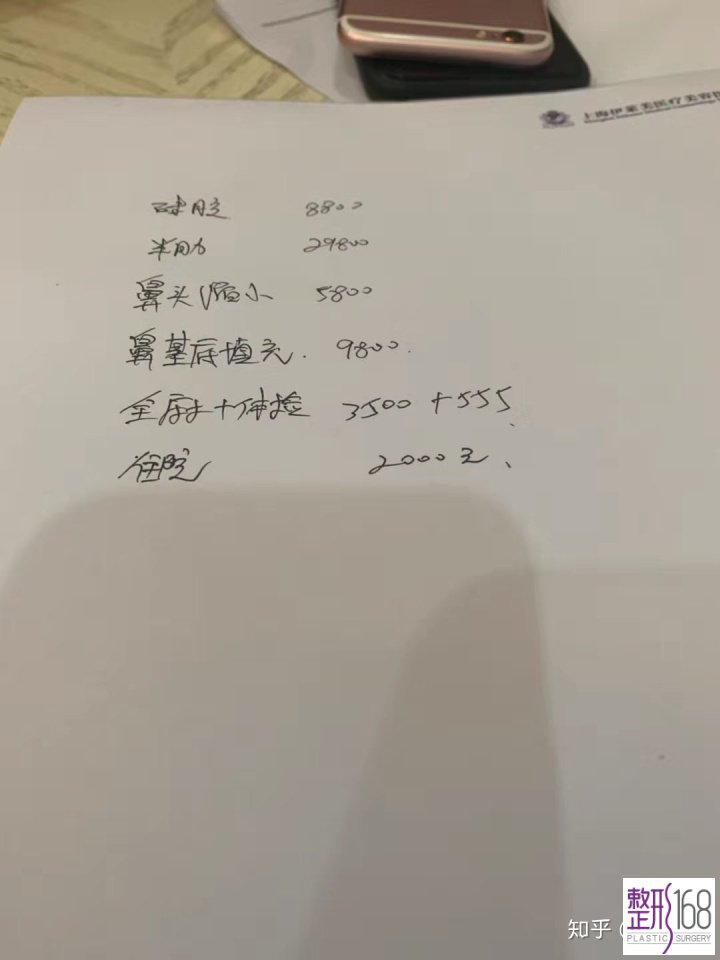 上海伊莱美医疗美容医
硅胶 8800
半肋 29800
鼻头缩小 5800
鼻基底填充. 9800.
全麻+体检 3500+555、
住院 2000元、
知乎
整形168
PLASTIC SURGERY